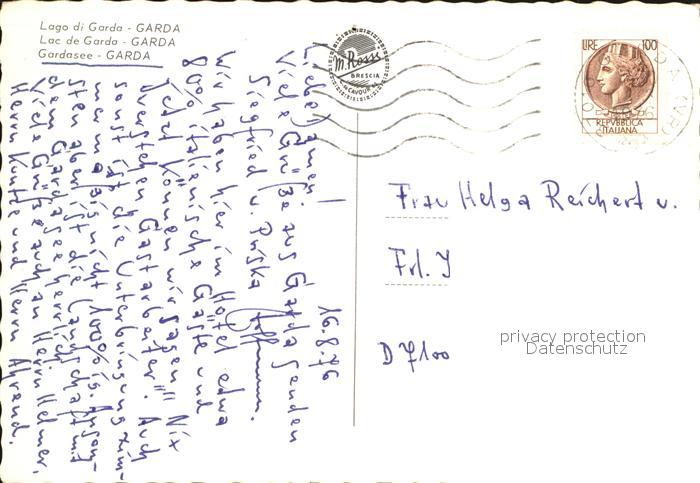 Lago di Garda - GARDA
Lac de Garda - GARDA
Gardasee - GARDA
M. Rossi
BRESCIA
V. CAVOUR
LIRE 100
REPVBBLICA
ITALIANA
16.8.76
Liebe Damen!
Viele Grüße aus Garda senden
Siegfried u.
Wir haben hier im Hotel etwa
80% italienische Gäste und
jetzt können wir sagen "Nix
verstehen Gastarbeiter". Auch
sonst ist die Unterbringung zim-
men nicht 100% ig. Anson-
sten aber ist die Landschaft mit
dem Gardasee herrlich.
Viele Grüße auch an Herrn Helmer,
Herrn Kuntze und Herrn Ahrend.
Frau Helga Reichert u.
Frl. Y
D 7100
privacy protection
Datenschutz